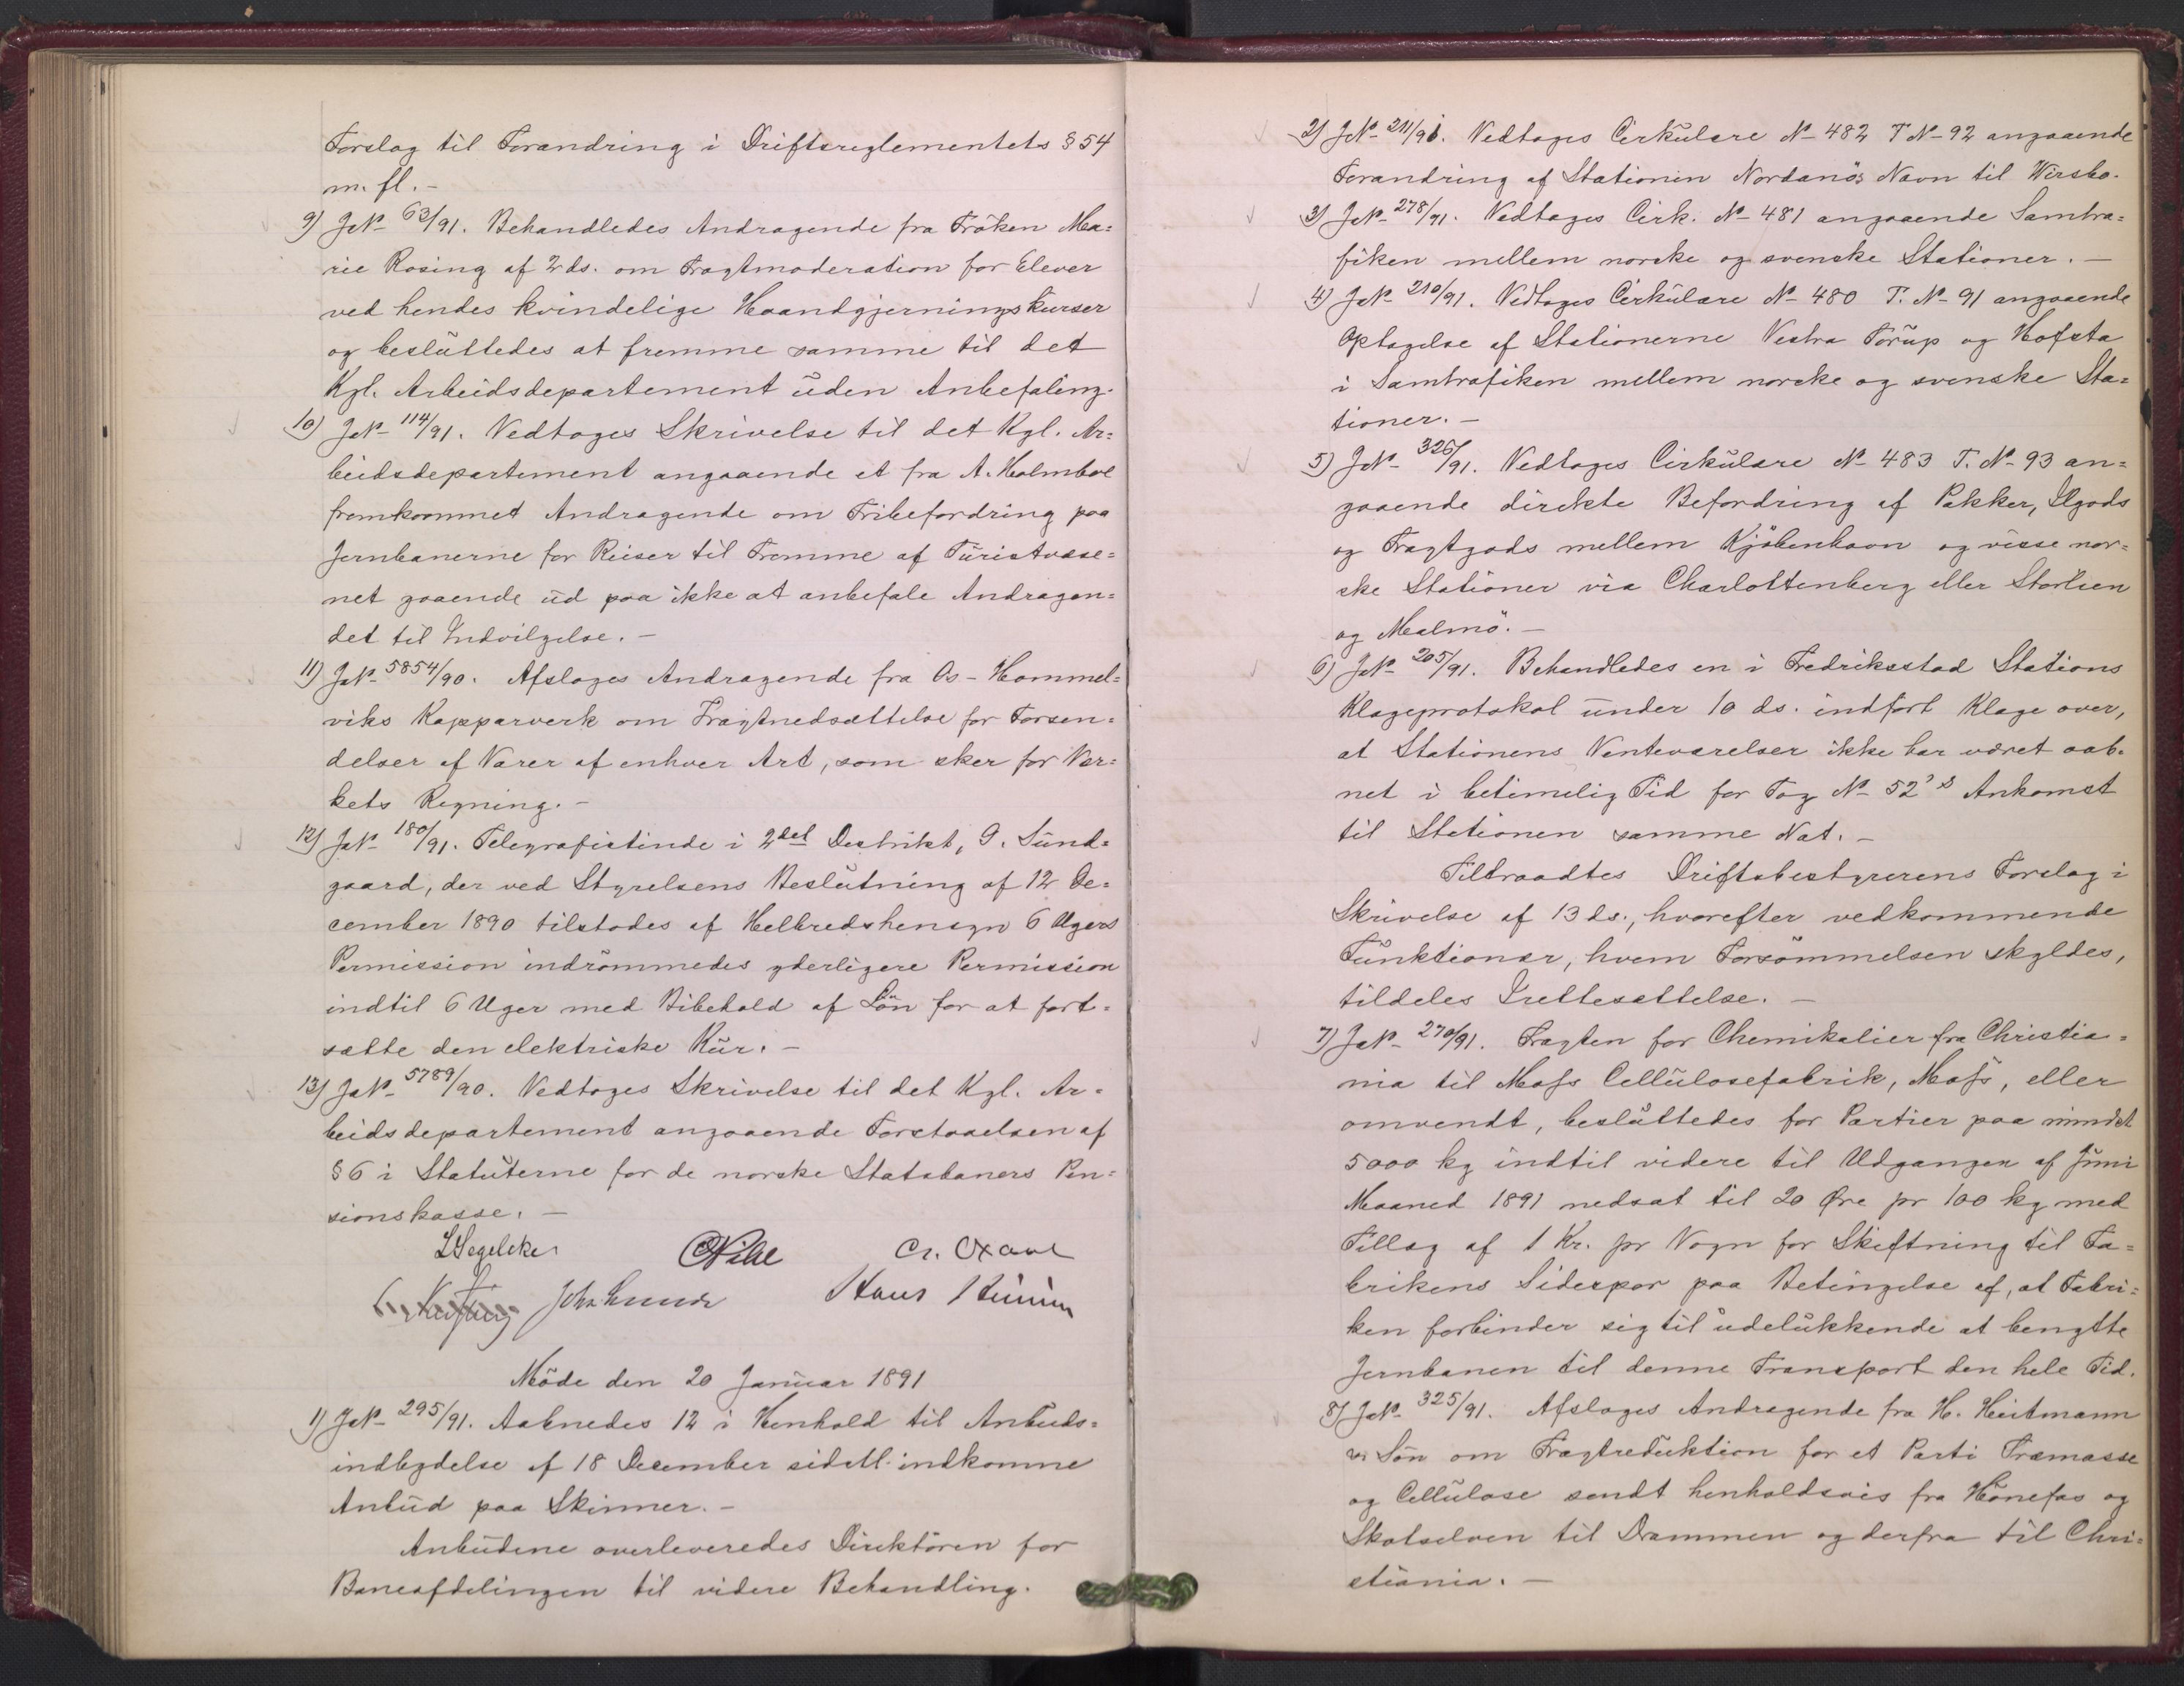 Forslag til Forandring i Driftsreglementets § 54
m. fl. -
9) J№ 63/91. Behandledes Andragende fra Fröken Ma=
rie Rosing af 2 ds. om Fragtmoderation for Elever
ved hendes kvindelige Haandgjerningskurser
og besluttedes at fremme samme til det
Kgl. Arbeidsdepartement uden Anbefaling.
10) J№ 114/91. Vedtoges Skrivelse til det Kgl. Ar=
beidsdepartement angaaende et fra A. Holmboe
fremkommet Andragende om Fribefordring paa
Jernbanerne for Reiser til Fremme af Turistvæse=
net gaaende ud paa ikke at anbefale Andragen=
det til Indvilgelse. -
11) J№ 5854/90. Afsloges Andragende fra Os-Hommel=
viks Kopparverk om Fragtnedsættelse for Forsen=
delser af Varer af enhver Art, som sker for Vær=
kets Regning. -
12) J№ 180/91. Telegrafistinde i 2det Distrikt, G. Sund=
gaard, der ved Styrelsens Beslutning af 12 De=
cember 1890 tilstodes af Helbredshensyn 6 Ugers
Permission indrömmedes yderligere Permission
indtil 6 Uger med Bibehold af Lön for at fort=
sætte den elektriske Kur. -
13) J№ 5789/90. Vedtoges Skrivelse til det Kgl. Ar=
beidsdepartement angaaende Forstaaelsen af
§ 6 i Statuterne for de norske Statsbaners Pen=
sionskasse. -
LSegelcke
Hans
Möde den 20 Januar 1891
1) J№ 295/91. Aabnedes 12 i Henhold til Anbuds=
indbydelse af 18 December sidstl. indkomne
Anbud paa Skinner. -
Anbudene overleveredes Direktören for
Baneafdelingen til videre Behandling.
2) J№ 211/91. Vedtoges Cirkulære № 482 T № 92 angaaende
Forandring af Stationen Nordanös Navn til Wirsbo.
3) J№ 278/91. Vedtoges Cirk. № 481 angaaende Samtra=
fiken mellem norske og svenske Stationer. -
4) J№ 210/91. Vedtoges Cirkulære № 480 T. № 91 angaaende
Optagelse af Stationerne Vestra Torup og Hofsta
i Samtrafiken mellem norske og svenske Sta=
tioner. -
5) J№ 326/91. Vedtoges Cirkulære № 483 T. № 93 an=
gaaende direkte Befordring af Pakker, Ilgods
og Fragtgods mellem Kjöbenhavn og visse nor=
ske Stationer via Charlottenberg eller Storlien
og Malmö. -
6) J№ 205/91. Behandledes en i Fredriksstad Stations
Klageprotokol under 10 ds. indfört Klage over,
at Stationens Venteværelser ikke har været aab=
net i betimelig Tid for Tog № 52's Ankomst
til Stationen samme Nat. -
Tiltraadtes Driftsbestyrerens Forslag i
Skrivelse af 13 ds., hvorefter vedkommende
Funktionær, hvem Forsömmelsen skyldes,
tildeles Irettesættelse. -
7) J№ 270/91. Fragten for Chemikalier fra Christia=
nia til Moss Cellulosefabrik, Moss, eller
omvendt, besluttedes for Partier paa mindst
5000 kg indtil videre til Udgangen af Juni
Maaned 1891 nedsat til 20 Øre pr 100 kg med
Tillæg af 1 Kr. pr Vogn for Skiftning til Fa=
brikens Sidespor paa Betingelse af, at Fabri=
ken forbinder sig til udelukkende at benytte
Jernbanen til denne Transport den hele Tid.
8) J№ 325/91. Afsloges Andragende fra H. Heitmann
& Sön om Fragtreduktion for et Parti Træmasse
og Cellulose sendt henholdsvis fra Hönefos og
Skotselven til Drammen og derfra til Chri=
stiania. -